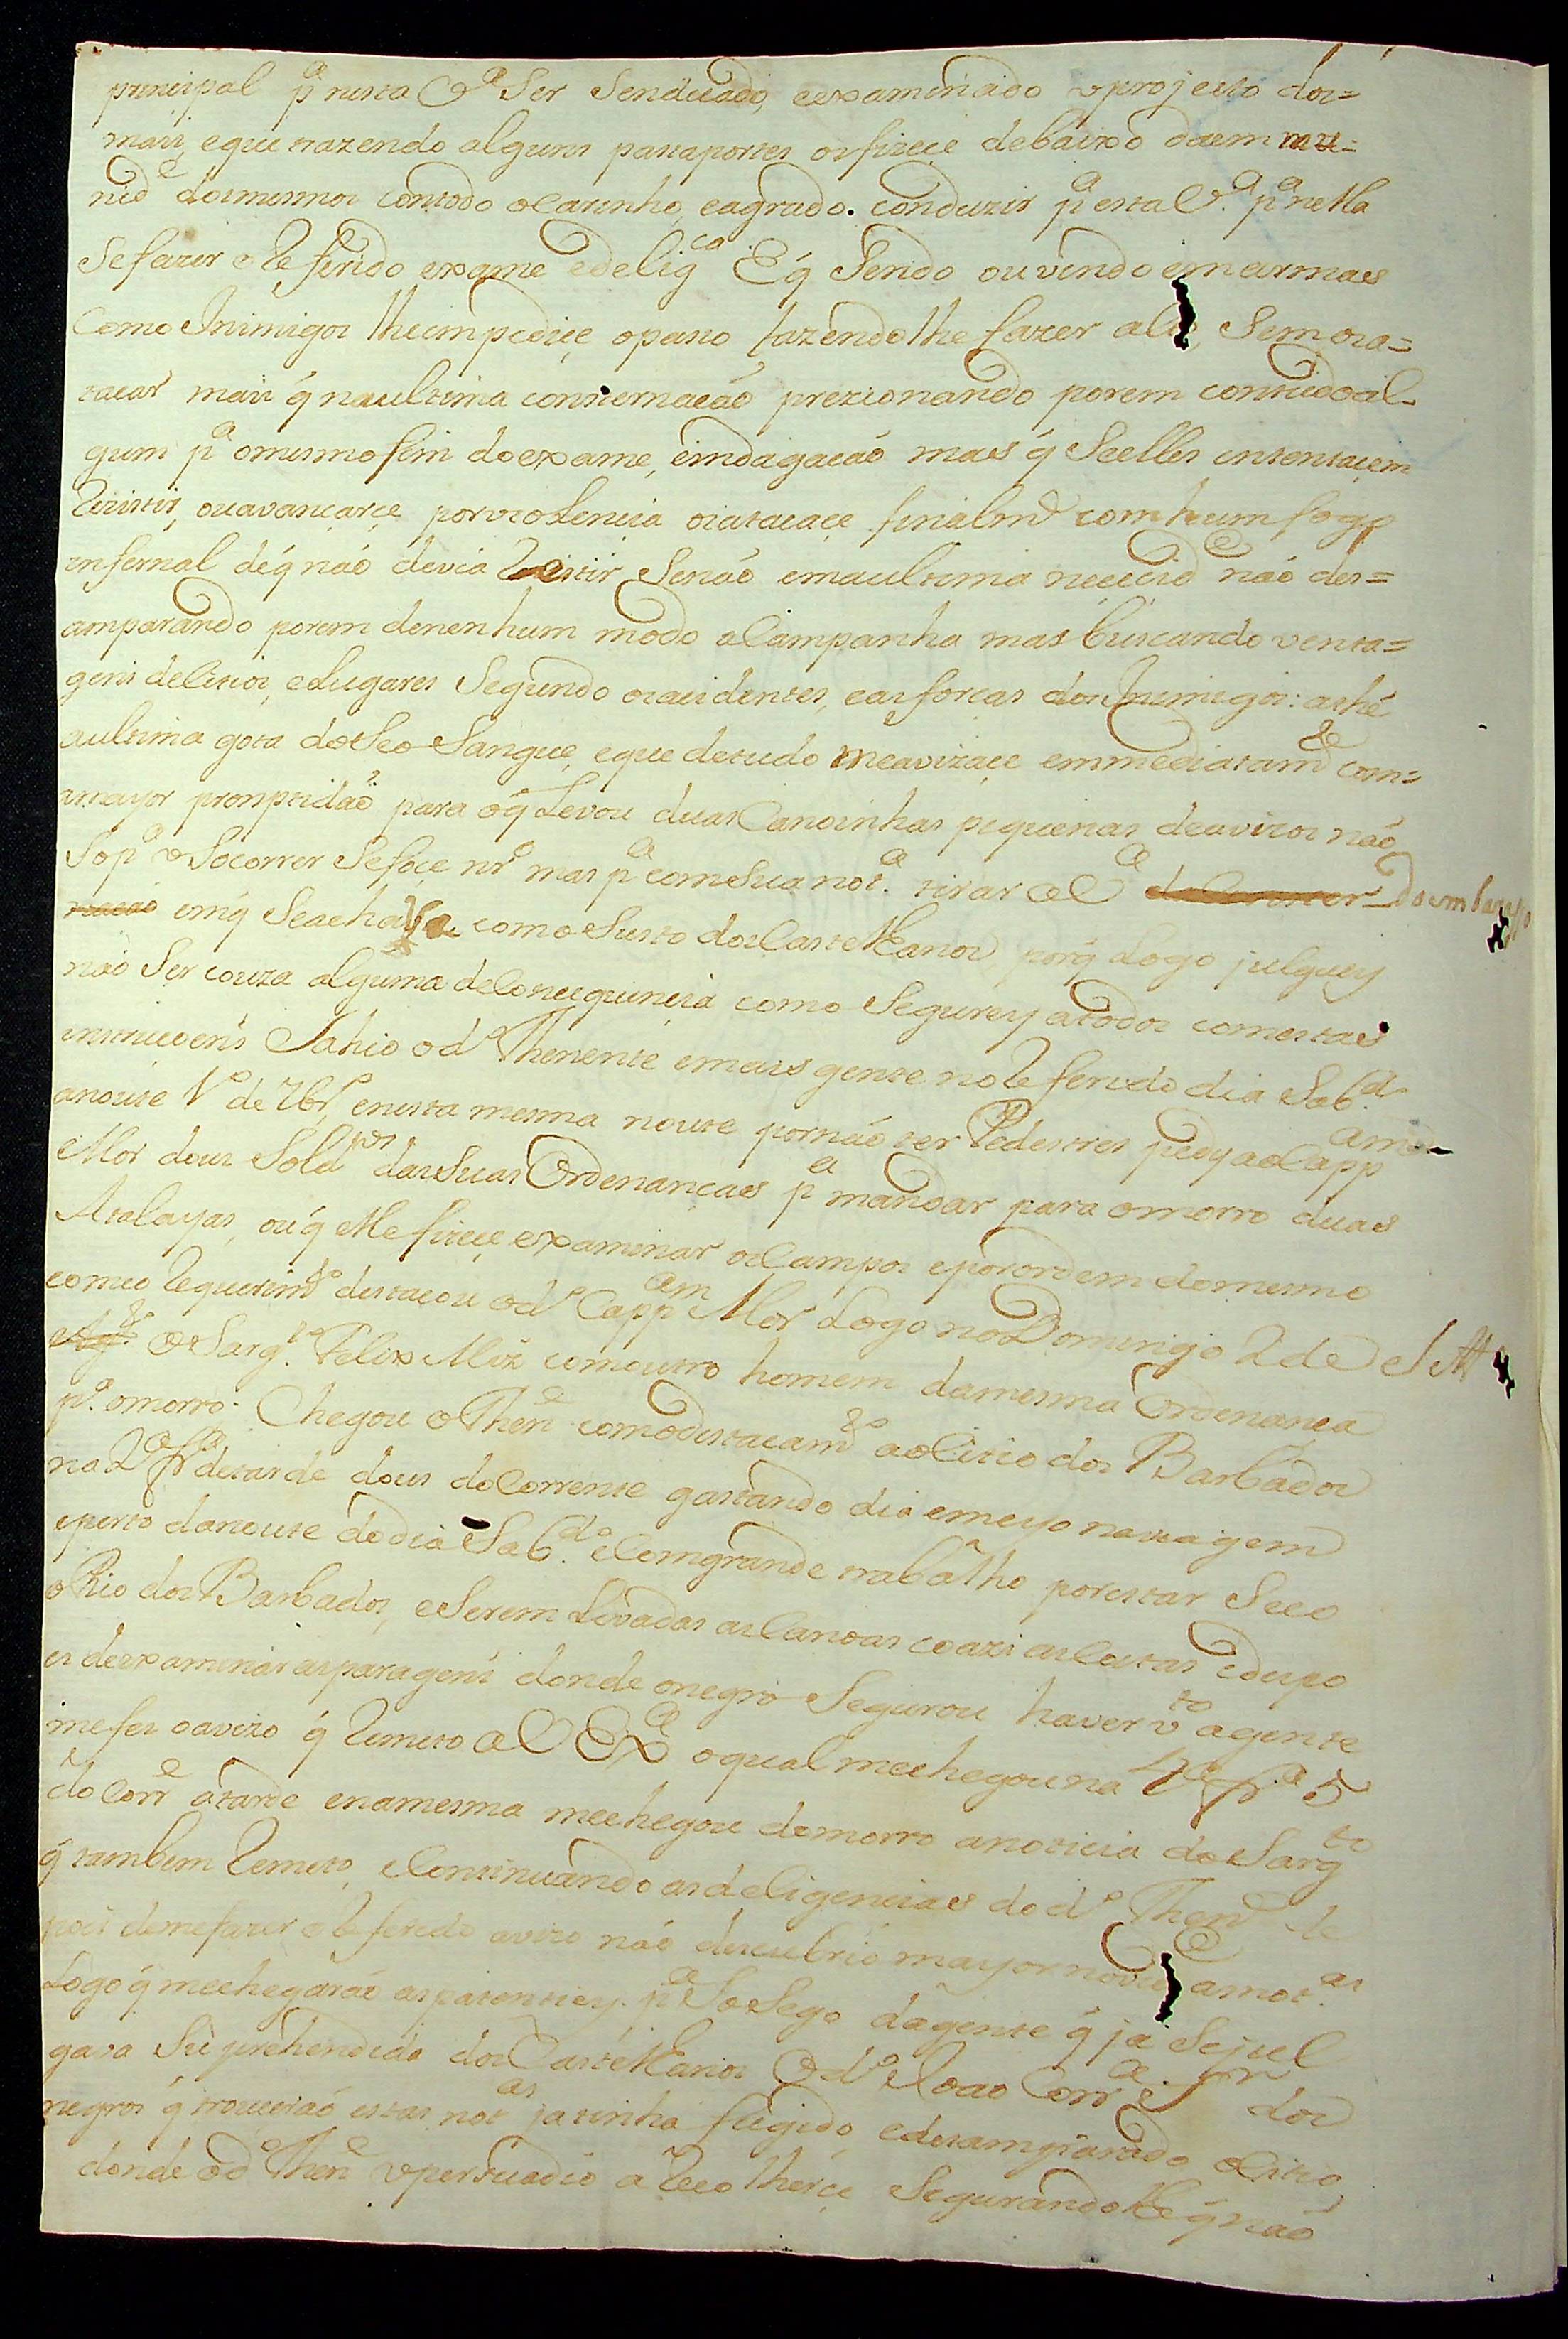 principal pª nesta Vª Ser Sendicado, eexaminado oprojecto dos=
mais, eque trazendo alguns passaportes osfizeçe debaixo daemmu=
nidᵉ dosmesmos comtodo oCarinho, eagrado. conduzir pª esta Vª. pª nella
Sefazer oReferido exame edeligᶜᵃ Eq̃ Sendo ouvindo emarmas
Como Inimigos lheempediçe opasso fazendolhe fazer alto Semosa=
tacar mais q̃ naultima consternacaõ prezionando porem comtudoal-
gum pª omesmofim doexame, eindagacaõ mas q̃ Seelles intentaçem
Rezistir, ouavançarçe porviolencia osatacaçe finalmᵉ com hum fogo
infernal deq̃ naõ devia Dezistir Senaõ emaultima neceçidᵉ naõ des=
amparando porem denenhum modo aCampanha mas buscando venta=
gens deCitios, eLugares Segundo osacidentes, easforcas dos Inimigos: athé
aultima gota doSeo Sangue, eque detudo meavizaçe emmediatamᵗᵉ com=
amayor promptidaõ para oq̃ Levou duasCanoinhas piquenas deavizos naõ
Sopª oSocorrer Sefoçe nrº mas pª comaSua notª. tirar aVª daConster- doembaraço
nacaõ emq̃ Seachava como Susto dosCastellanos, porq̃ Logo julguey
naõ Ser couza alguma deConcequencia como Segurey atodos comestas
instrucoens Sahio odº Thenente emais gente noReferido dia Sabᵈᵒ
anoute 1º de 7brº, enesta mesma noute pornaõ ter Pedestres pedy aoCappᵃᵐ
Mor dous Soldᵒˢ dasSuas Ordenanças pª mandar para omorro duas
Atalayas, ouq̃ lhe fizeçe examinar osCampos eporordem domesmo
comeo Requerimᵗᵒ destacou odº Cappᵃᵐ Mor Logo noDomingo 2 de
oSargᵗᵒ. Felix Miz comoutro homem damesma Ordenança
pª. omorro. Chegou oThenᵉ comodestacamᵗᵒ aoCitio dos Barbados
na 2ª frª detarde dous doCorrente gastando dia emeyo naviagem
eperto danoute dodia Sabᵈᵒ. eComgrande trabalho porestar Seco
oRio dosBarbados, eSerem Levadas asCanoas coazi asCostas edepo
is deexaminar asparagens donde onegro Segurou haver vᵗᵒ agente
mefes oavizo q̃ Remeto aV Exª oqual mechegou na 4ª frª 5
doCorrᵉ atarde enamesma mechegou domorro anoticia doSargᵗᵒ
q̃ tambem Remeto, eContinuando asdeligencias do dº Thenᵉ de
pois demefazer oReferido avizo naõ descubrio mayor asnotᵃˢ
Logo q̃ mechegaraõ aspatentiey. pª SoSego dagente q̃ ja Sejul
gava Surprehendida dosCastellanos Odº Joao Corrª Sr dos
negros q̃ trouceraõ estas notᵃˢ ja tinha fugido, edesamparado oCitio,
donde odº Thenᵉ opersuadio aRecolherçe Segurandolhe q̃ naõ